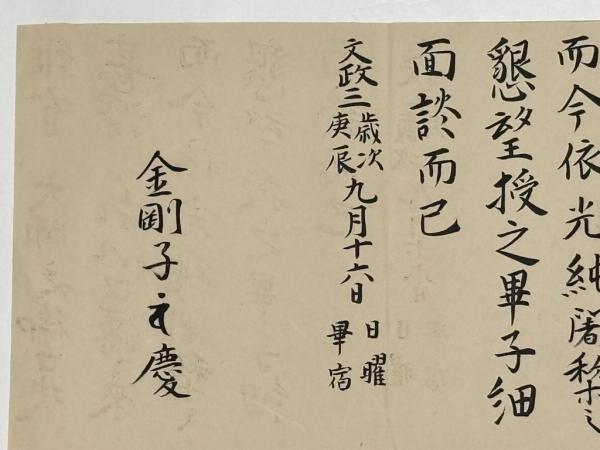 而今依光純闍梨之
懇望授之畢子細
面談而已
文政三歳次庚辰九月十六日 日曜畢宿
金剛子元慶